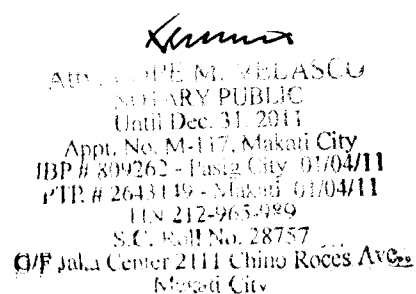 Atty. LOPE M. VELASCO
NOTARY PUBLIC
Until Dec. 31, 2011
Appt. No. M-117, Makati City
IBP # 809262 - Pasig City 01/04/11
PTR # 2643149 - Makati 01/04/11
TIN 212-965-989
S.C. Roll No. 28757
G/F Jaka Center 2111 Chino Roces Ave.,
Makati City